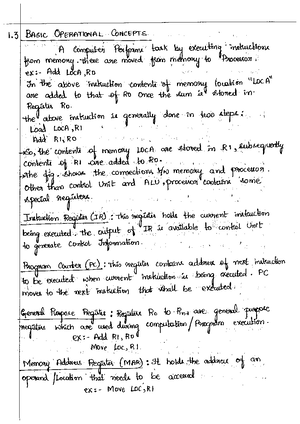 1.3 BASIC OPERATIONAL CONCEPTS
A Computer Performs task by executing instructions
from memory. these are moved from memory to Processor.
ex:- Add LOCA, R0
In the above instruction contents of memory location "LOCA"
are added to that of R0 Once the sum is stored in
Register R0.
the above instruction is generally done in two steps:
Load LOCA, R1
Add R1, R0
So, the contents of memory LOCA are stored in R1, subsequently
contents of R1 are added to R0.
the fig. shows the connections b/w memory and processor.
Other than control Unit and ALU, processor contains some
special registers.
Instruction Register (IR): this register holds the current instruction
being executed. the output of IR is available to control Unit
to generate Control Information.
Program Counter (PC): this register contains address of next instruction
to be executed when current instruction is being executed. PC
moves to the next instruction that shall be executed.
General Purpose Register: Registers R0 to Rn-1 are general purpose
registers which are used during computation / Program execution.
ex:- Add R1, R0
Move LOC, R1
Memory Address Register (MAR): It holds the address of an
operand / location that needs to be accessed
ex:- Move LOC, R1